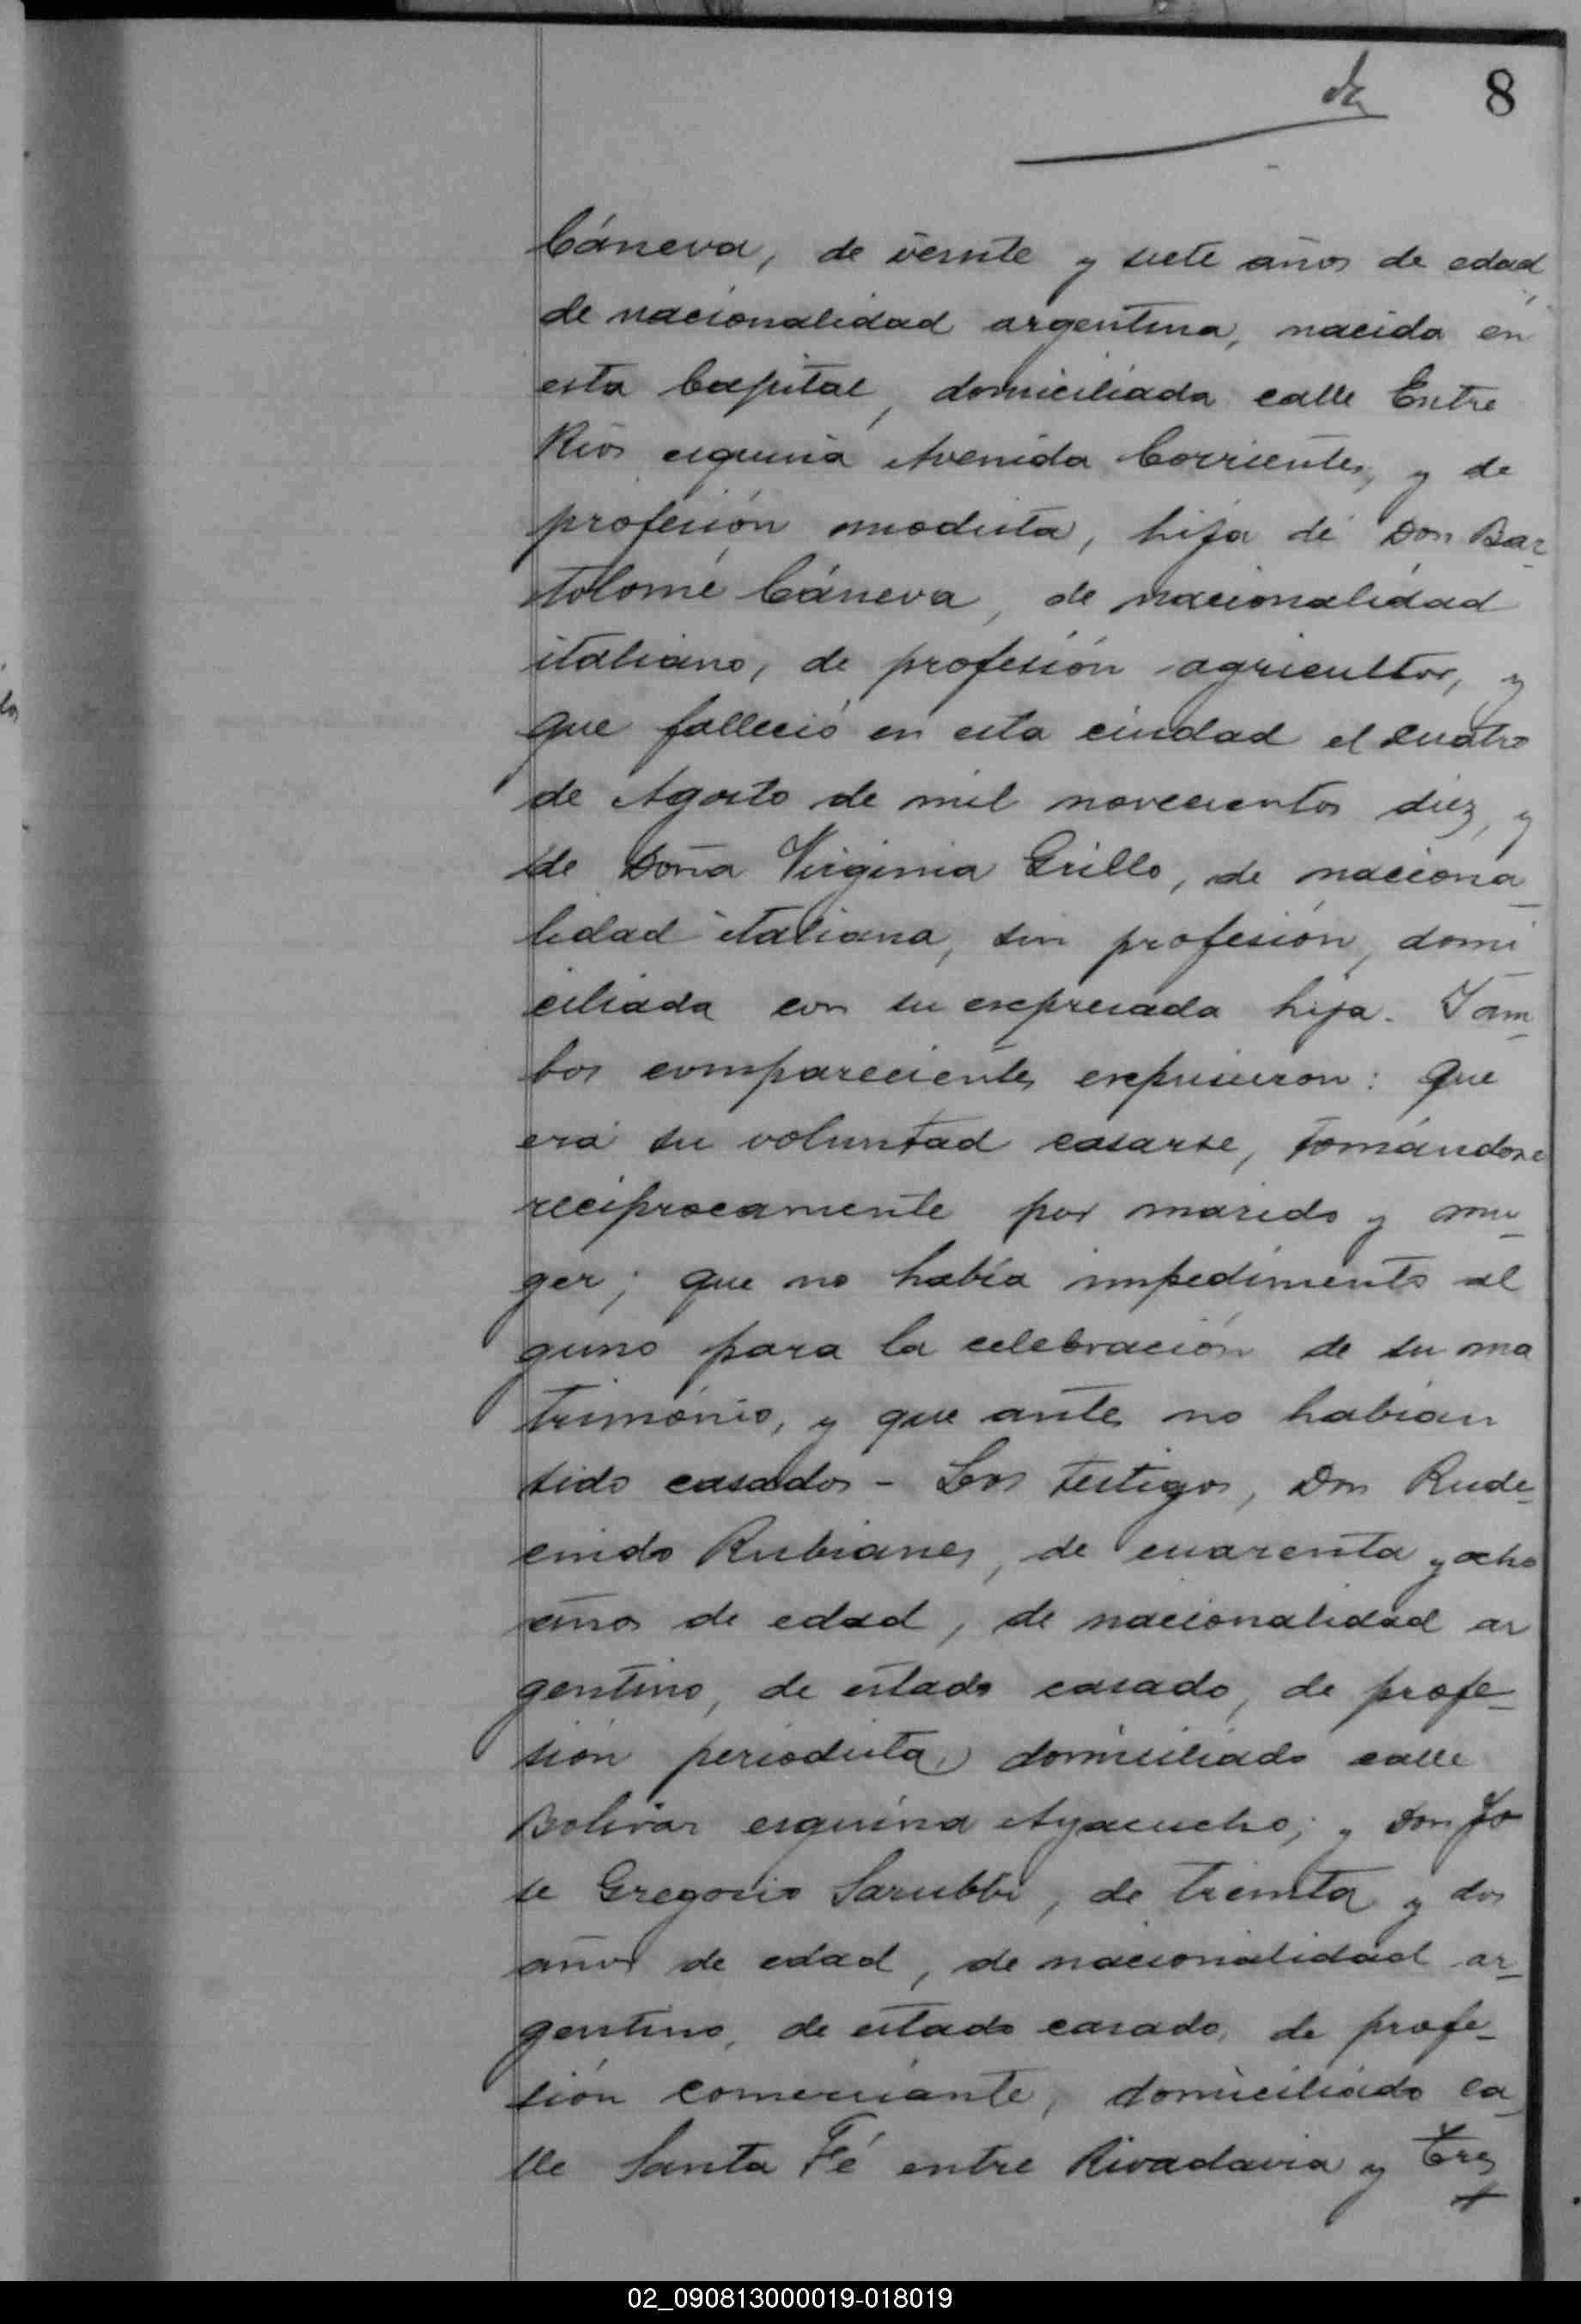 8
Cáneva, de veinte y siete años de edad,
de nacionalidad argentina, nacida en
esta Capital, domiciliada calle Entre
Rios esquina Avenida Corrientes, y de
profesión modista, hija de Don Bar-
tolomé Cáneva, de nacionalidad
italiano, de profesión agricultor, y
que falleció en esta ciudad el cuatro
de Agosto de mil novecientos diez, y
de Doña Virginia Grillo, de naciona-
lidad italiana, sin profesión, domi
ciliada con su expresada hija. Y am-
bos comparecientes expusieron: que
era su voluntad casarse, tomándose
reciprocamente por marido y mu-
ger; que no había impedimento al
guno para la celebración de su ma
trimonio, y que antes no habian
sido casados - Los testigos, Don Rude-
cindo Rubianes, de cuarenta y ocho
años de edad, de nacionalidad ar
gentino, de estado casado, de profe-
sión periodista, domiciliado calle
Bolivar esquina Ayacucho; y Don Jo
se Gregorio Sarubbi, de treinta y dos
años de edad, de nacionalidad ar-
gentino, de estado casado, de profe-
sión comerciante, domiciliado ca
lle Santa Fé entre Rivadavia y Tres
02_090813000019-018019